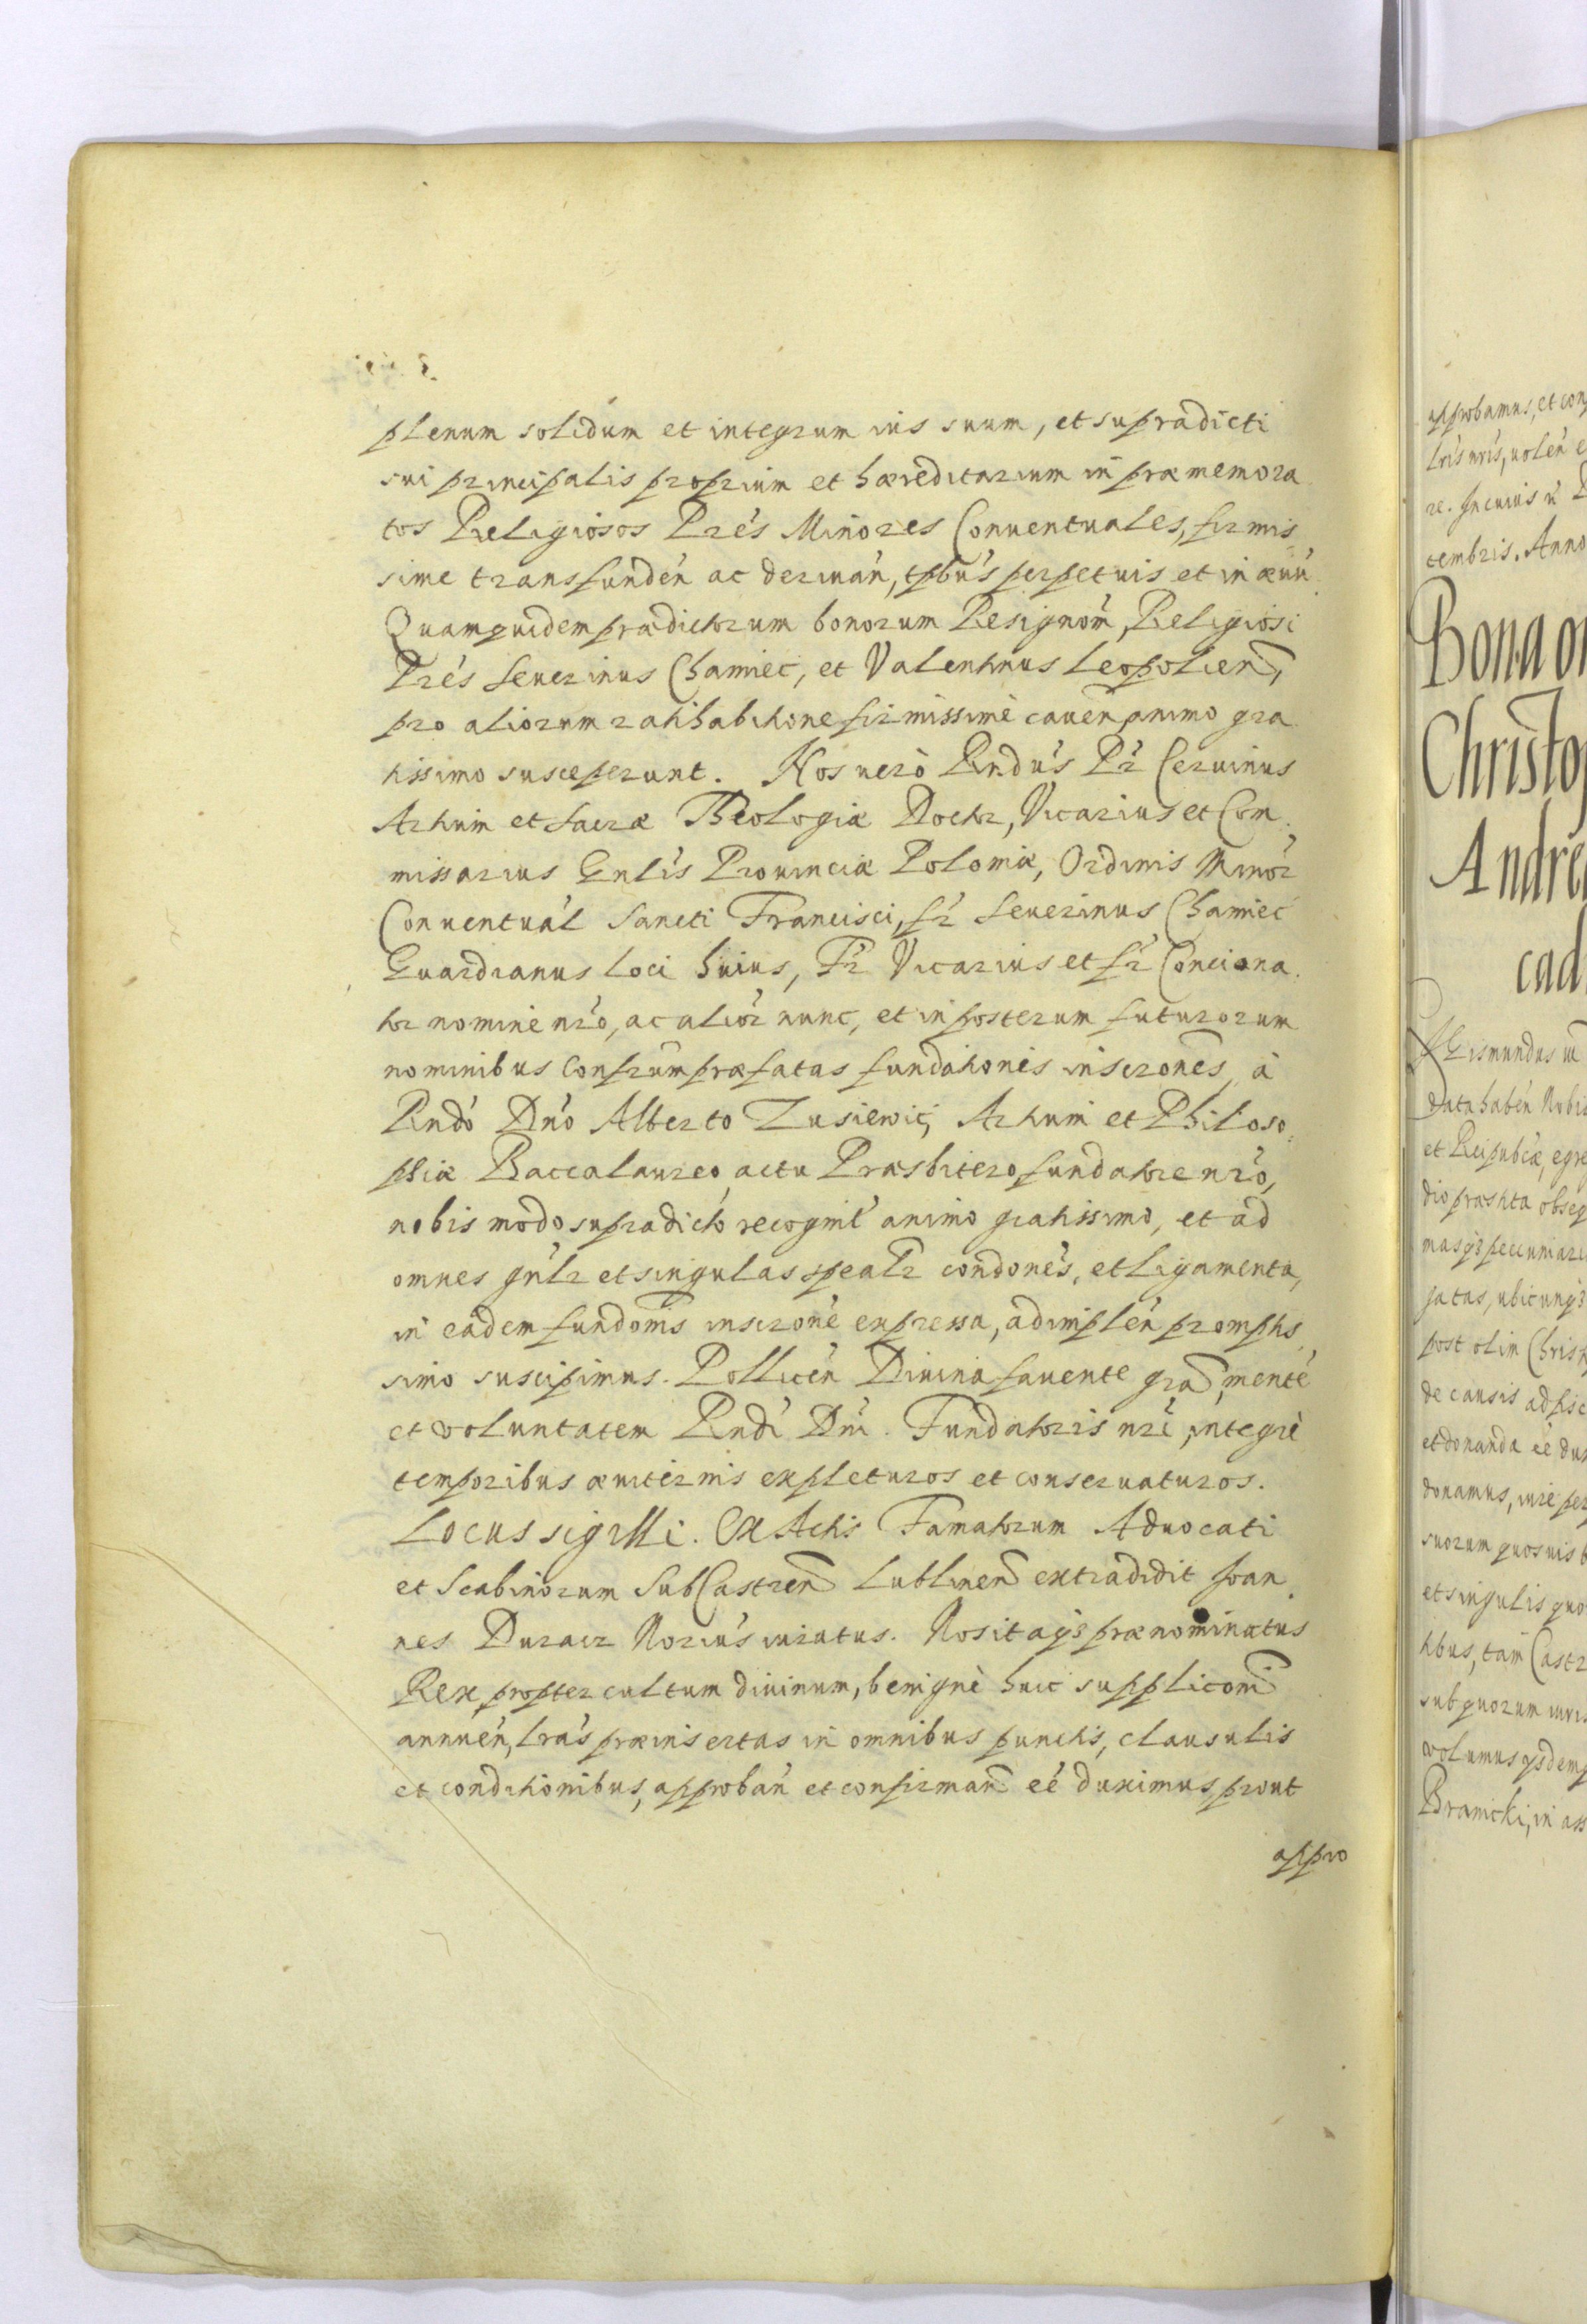 plenum solidum et integrum ius suum, et supradicti
sui principalis proprium et hæreditarium in præmemora
tos Religiosos Prés Minores Conuentuales, firmis
sime transfundeń ac deriuań, tpbús perpetuis et in æuú
Quamquidem prædictorum bonorum Resignom̃, Religiosi
Prés Seuerinus Chamiec, et Valentinus Leopolien̄,
pro aliorum ratihabitione firmissimè cauen̄ animo gra
tissimo susceperunt. Nos uerò Rndús Pr̃ Ceruinus
Artium et Sacræ Theologiæ Doctor, Vicarius et Com
missarius Gnlís Prouinciæ Poloniæ, Ordinis Minor̃
Conuentuál Sancti Francisci, fr̃ Seuerinus Chamiec
Guardianus loci huius, Fr̃ Vicarius et fr̃ Conciona
tor nomine nr̃o, ac alior̃ nunc, et in posterum futurorum
nominibus Confrum̃ præfatas fundationis inscrones, à
Rndó Dnó Alberto Zusiewic, Artium et Philoso
phiæ Baccalaureo, actu Præsbitero fundatore nr̃o,
nobis modo supradicto recognit́ animo gratissimo, et ad
omnes gńlr et singulas spealr condonés, et ligamenta,
in eadem fundonis inscroné expressa, adimpleń promptis
simo suscipimus. Polliceń Diuina fauente gr̃a, menté
et voluntatem Rndi Dńi. Fundatoris nr̃i, integrè
temporibus æuiternis expleturos et conseruaturos.
Locus sigilli. Ex Actis Famatorum Aduocati
et Scabinorum SubCastren̄ Lublinen̄ extradidit Joan
nes Duracz Noriús iuratus. Nos itaq3 prænominatus
Rex, propter cultum diuinum, benignè huic suppliconi
annueń, lrás præinsertas in omnibus punctis, clausulis
et conditionibus, approbań et confirman̄ eé duximus, prout
appro
approbamus, et con
lrís nrís, uoleń e
re. In cuius r̃
tembris. Anno
Bona
Christo
Andre
cad
Sigismundus
Data habeń Nobis
et Reipubćæ, egre
dio præstita obseq
masq3 pecuniar
gatas, ubicunq3
post olim Christ
de causis ad fisc
et donanda eé dux
donamus, iure per
suorum quosuis b
et singulis quo
tibus, tam Castr
sub quorum iuris
volumus
Branicki, in ass